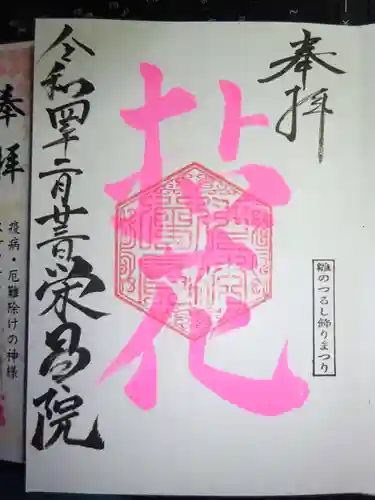 奉拝
雛のつるし飾りまつり
拈花
令和四年二月廿三日 栄昌院
奉拝
疫病・厄難除けの神様